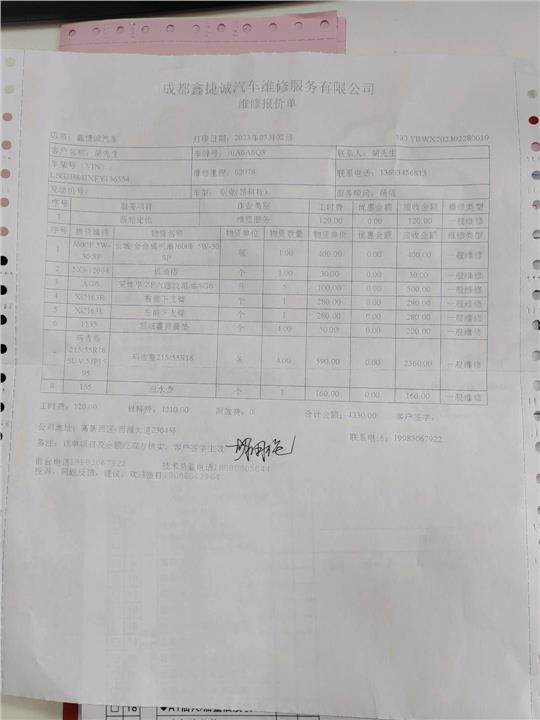 成都鑫捷诚汽车维修服务有限公司
维修报价单
店名：鑫捷诚汽车 打印日期：2023年03月02日 NO.YBWX202302280019
客户名称：胡先生 车牌号：川A6A6Q3 联系人：胡先生
车架号（VIN）： 维修里程：62078 联系电话：13693456813
发动机号： 车型： 服务顾问：杨强
序号 服务项目 作业类别 工时费 优惠金额 应收金额 维修类型
1 四轮定位 维修服务 120.00 0.00 120.00 一般维修
序号 物资编码 物资名称 物资单位 物资数量 物资单价 优惠金额 应收金额 维修类型
1 J600F 5W-30 SP 长城 全合成机油J600F 5W-30 SP 1.00 400.00 0.00 400.00 一般维修
2 机油格 个 1.00 30.00 0.00 30.00 一般维修
3 AG6 5 100.00 0.00 500.00 一般维修
4 右前下支臂 个 1 280.00 0.00 280.00 一般维修
5 左前下支臂 个 1 280.00 0.00 280.00 一般维修
6 1155 个 50.00 0.00 200.00 一般维修
7 玛吉斯 215/55R18 SUV 玛吉斯215/55R18 条 4.00 590.00 0.00 2360.00 一般维修
8 155 回水壶 个 1 160.00 0.00 160.00 一般维修
工时费：120.00 材料费：4210.00 附加费：0 合计金额：4330.00 客户签字：
公司地址：高新西区-西源大道2304号 联系电话：19983067922
备注：该单项目及金额经双方核实，客户签字生效
前台电话19983067922 技术总监电话18980805644
投诉、问题反馈、建议，欢迎拨打18908042564